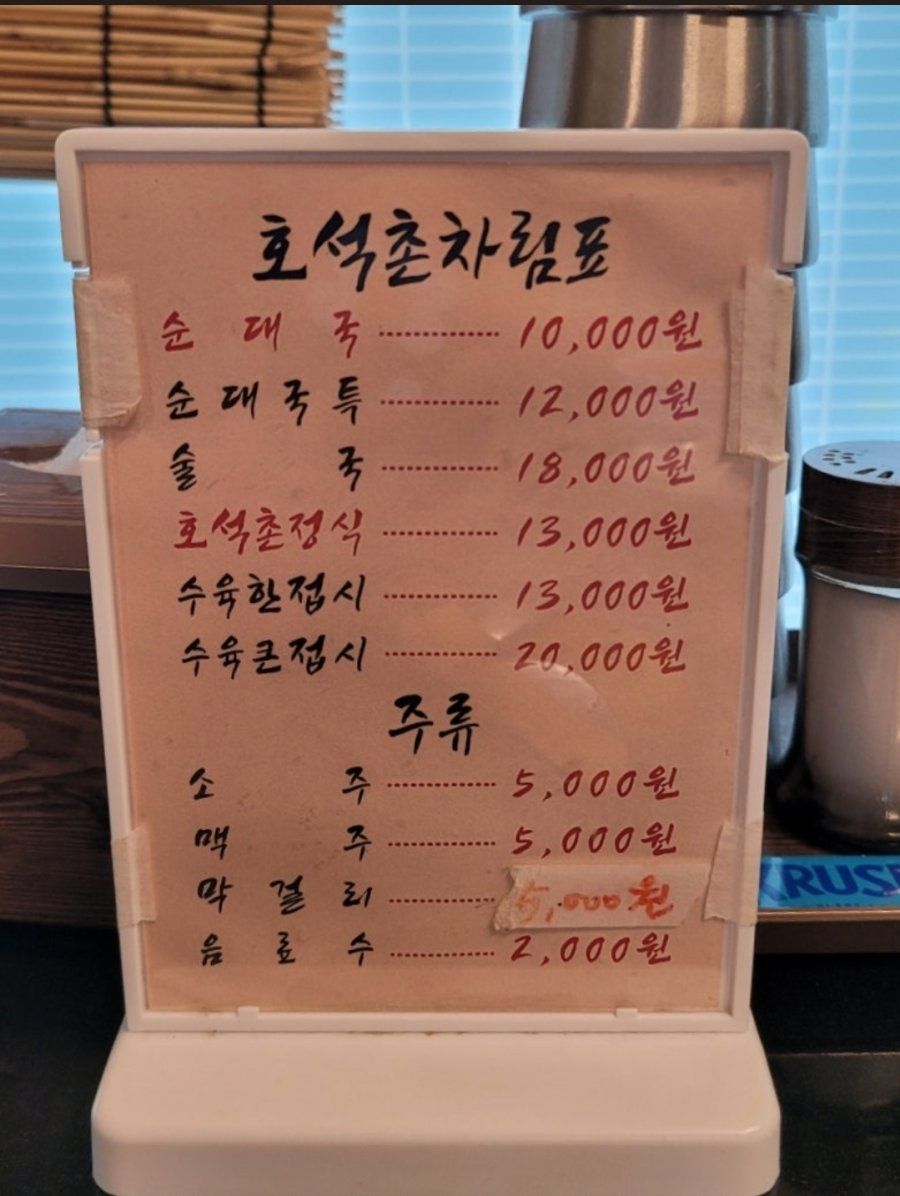 호석촌차림표
순대국 ---------- 10,000원
순대국특 ---------- 12,000원
술국 ---------- 18,000원
호석촌정식 ---------- 13,000원
수육한접시 ---------- 13,000원
수육큰접시 ---------- 20,000원
주류
소주 ---------- 5,000원
맥주 ---------- 5,000원
막걸리 ---------- 5,000원
음료수 ---------- 2,000원